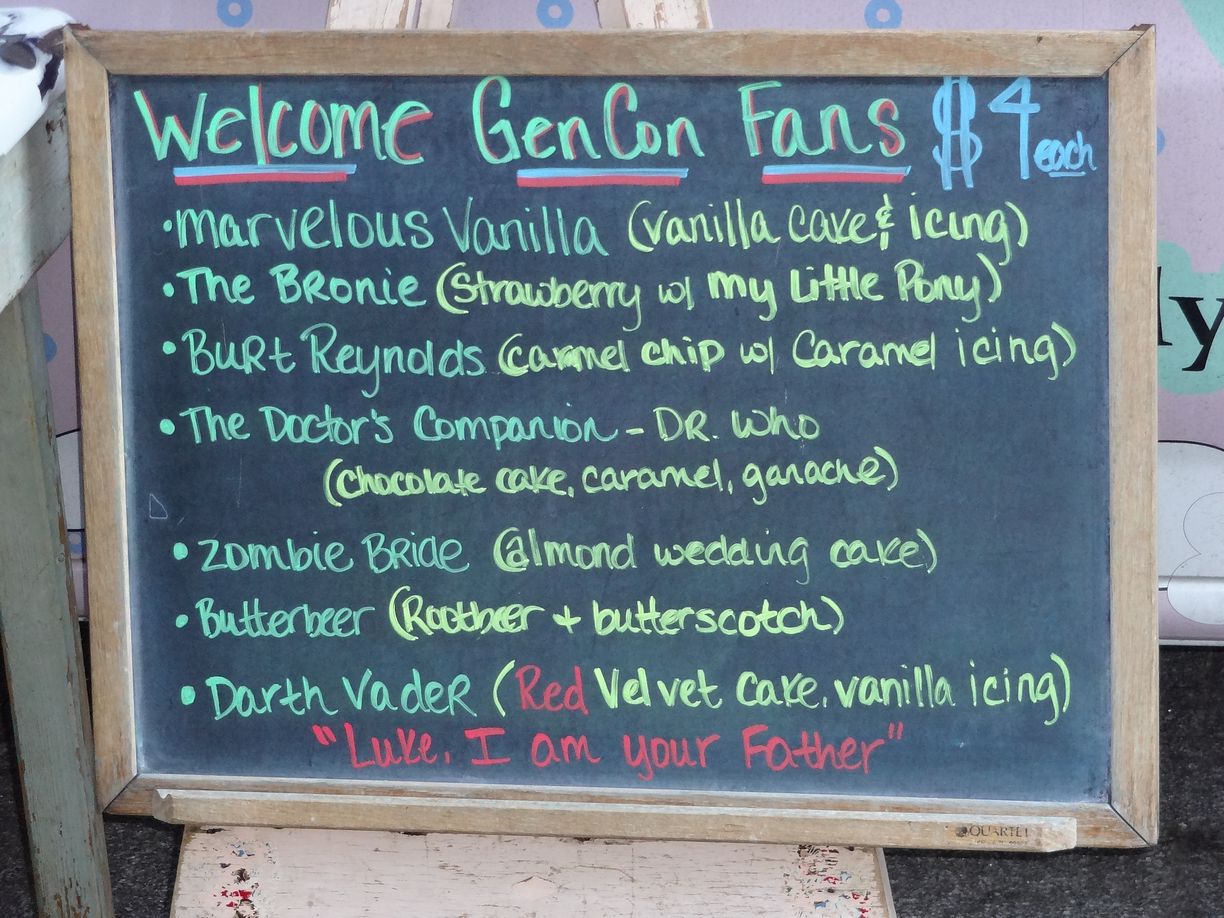 Welcome GenCon Fans $4 each
• Marvelous Vanilla (vanilla cake & icing)
• The Bronie (Strawberry w/ My Little Pony)
• Burt Reynolds (carmel chip w/ Caramel icing)
• The Doctor's Companion - DR. Who
(chocolate cake, caramel, ganache)
• Zombie Bride (almond wedding cake)
• Butterbeer (Rootbeer + butterscotch)
• Darth Vader (Red Velvet cake, vanilla icing)
"Luke, I am your Father"
QUARTET
ly